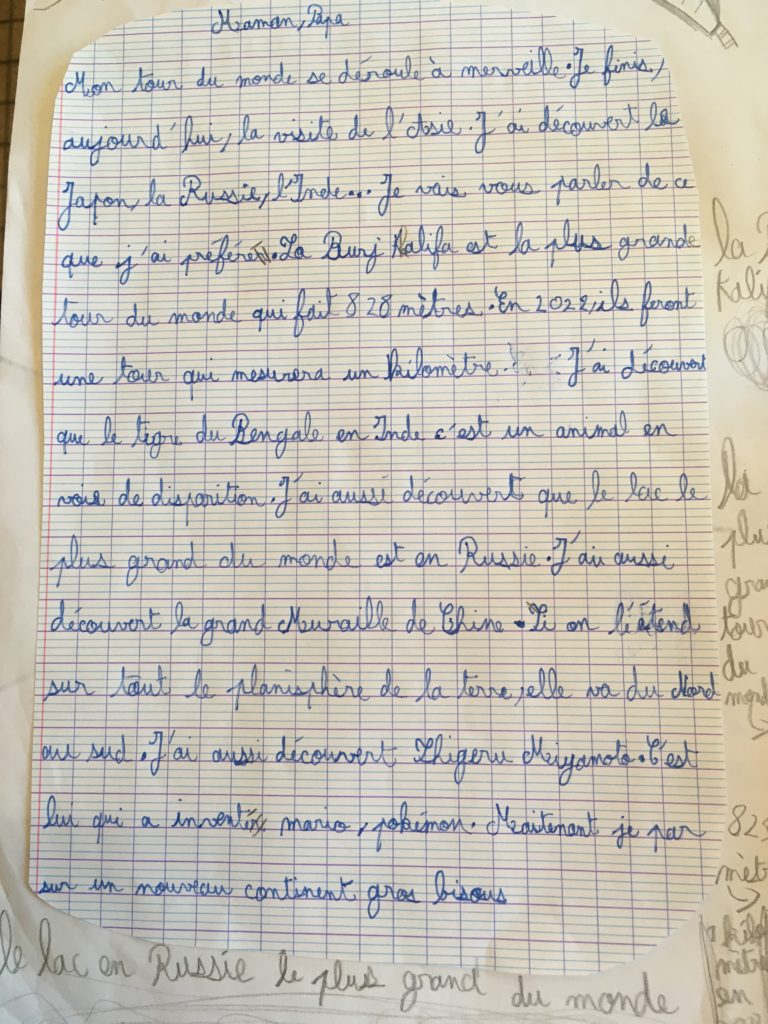 Maman, Papa
Mon tour du monde se déroule à merveille. Je finis,
aujourd'hui, la visite de l'Asie. J'ai découvert le
Japon, la Russie, l'Inde... Je vais vous parler de ce
que j'ai préféré. La Burj Kalifa est la plus grande
tour du monde qui fait 828 mètres. En 2022, ils feront
une tour qui mesurera un kilomètre. J'ai découvert
que le tigre du Bengale en Inde c'est un animal en
voie de disparition. J'ai aussi découvert que le lac le
plus grand du monde est en Russie. J'ai aussi
découvert la grand Meuraille de Chine. Si on l'étend
sur tout le planisphère de la terre, elle va du Nord
au sud. J'ai aussi découvert Shigeru Meiyamoto. C'est
lui qui a inventé mario, pokémon. Maitenant je par
sur un nouveau continent gros bisous
le lac en Russie le plus grand du monde
la
Kali
la
plu
gran
tour
du
mond
828
mèt
kilo
mètr
en